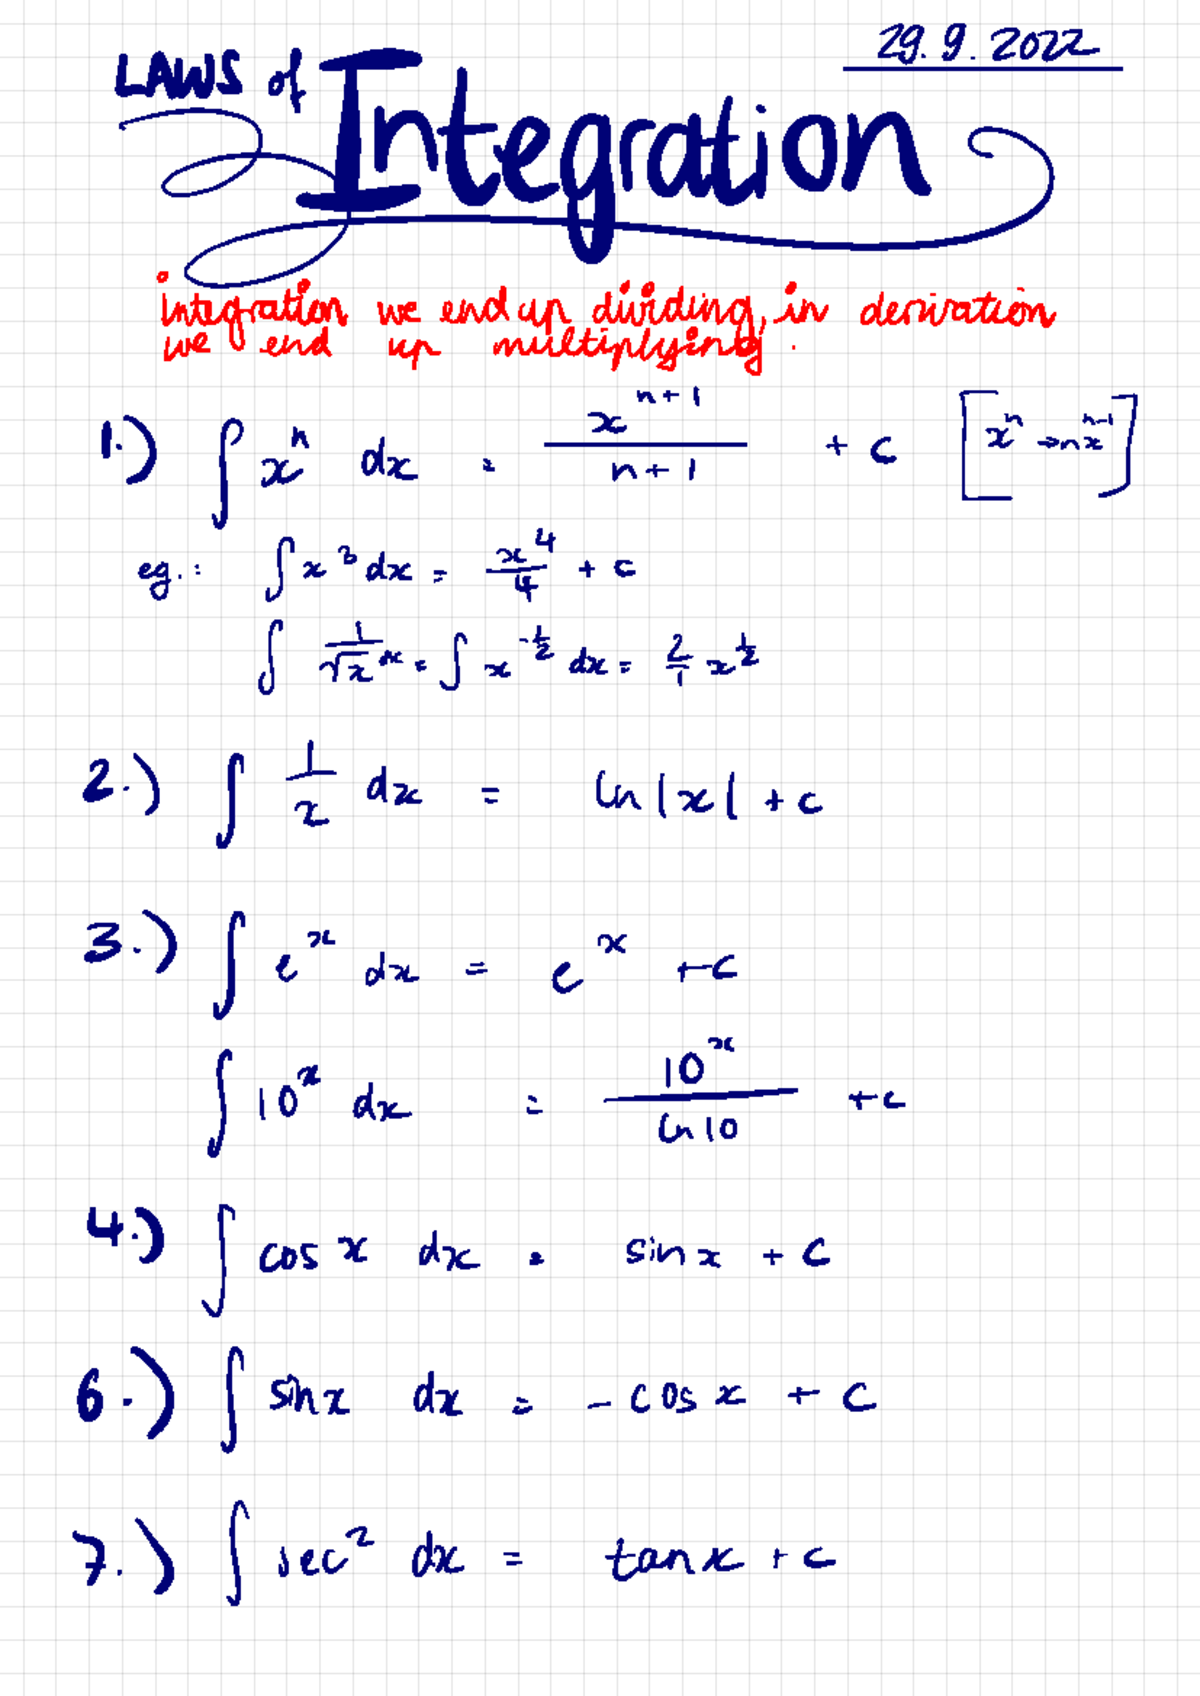 29.9.2022
LAWS of Integration
integration we end up dividing, in derivation
we end up multiplying.
1.) ∫ xⁿ dx = xⁿ⁺¹/(n+1) + c [xⁿ → nxⁿ⁻¹]
eg.: ∫ x³ dx = x⁴/4 + c
∫ 1/√x dx = ∫ x^(-1/2) dx = 2/1 x^(1/2)
2.) ∫ 1/x dx = ln|x| + c
3.) ∫ eˣ dx = eˣ + c
∫ 10ˣ dx = 10ˣ/ln10 + c
4.) ∫ cos x dx = sin x + c
6.) ∫ sinx dx = - cos x + c
7.) ∫ sec² dx = tanx + c